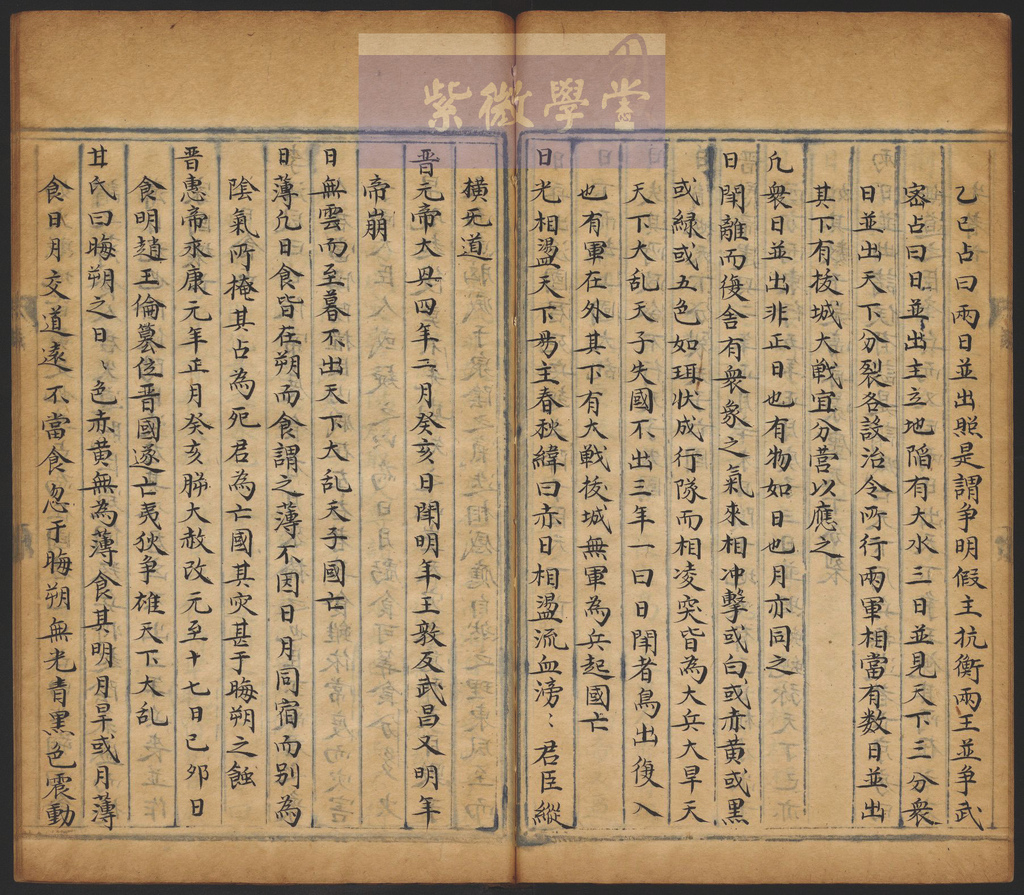 紫微學堂
乙巳占曰兩日並出照是謂争明假主抗衡兩王並争武
宻占曰日並出主立地䧟有大水三日並見天下三分衆
日並出天下分裂各設治令所行兩軍相當有数日並出
其下有㧞城大戦宜分营以應之
凡衆日並出非正日也有物如日也月亦同之
日閗離而復舍有衆象之氣來相冲擊或白或赤黄或黑
或緑或五色如珥状成行隊而相凌突皆為大兵大旱天
天下大乱天子失國不出三年一曰日閗者鳥出復入
也有軍在外其下有大戦㧞城無軍為兵起國亡
日光相盪天下昜主春秋緯曰亦日相盪流血滂〻君臣縱
橫无道
晋元帝大興四年二月癸亥日閗明年王敦反武昌又明年
帝崩
日無雲而至暮不出天下大乱天子國亡
日薄凡日食皆在朔而食謂之薄不因日月同宿而别為
陰氣所掩其占為死君為亡國其灾甚于晦朔之蝕
晋惠帝永康元年正月癸亥朔大赦改元至十七日己夘日
食明趙王倫簒位晋國遂亡夷狄争雄天下大乱
甘氏曰晦朔之日〻色赤黄無為薄食其明月旱或月薄
食日月交道逺不當食忽于晦朔無光青黑色震動